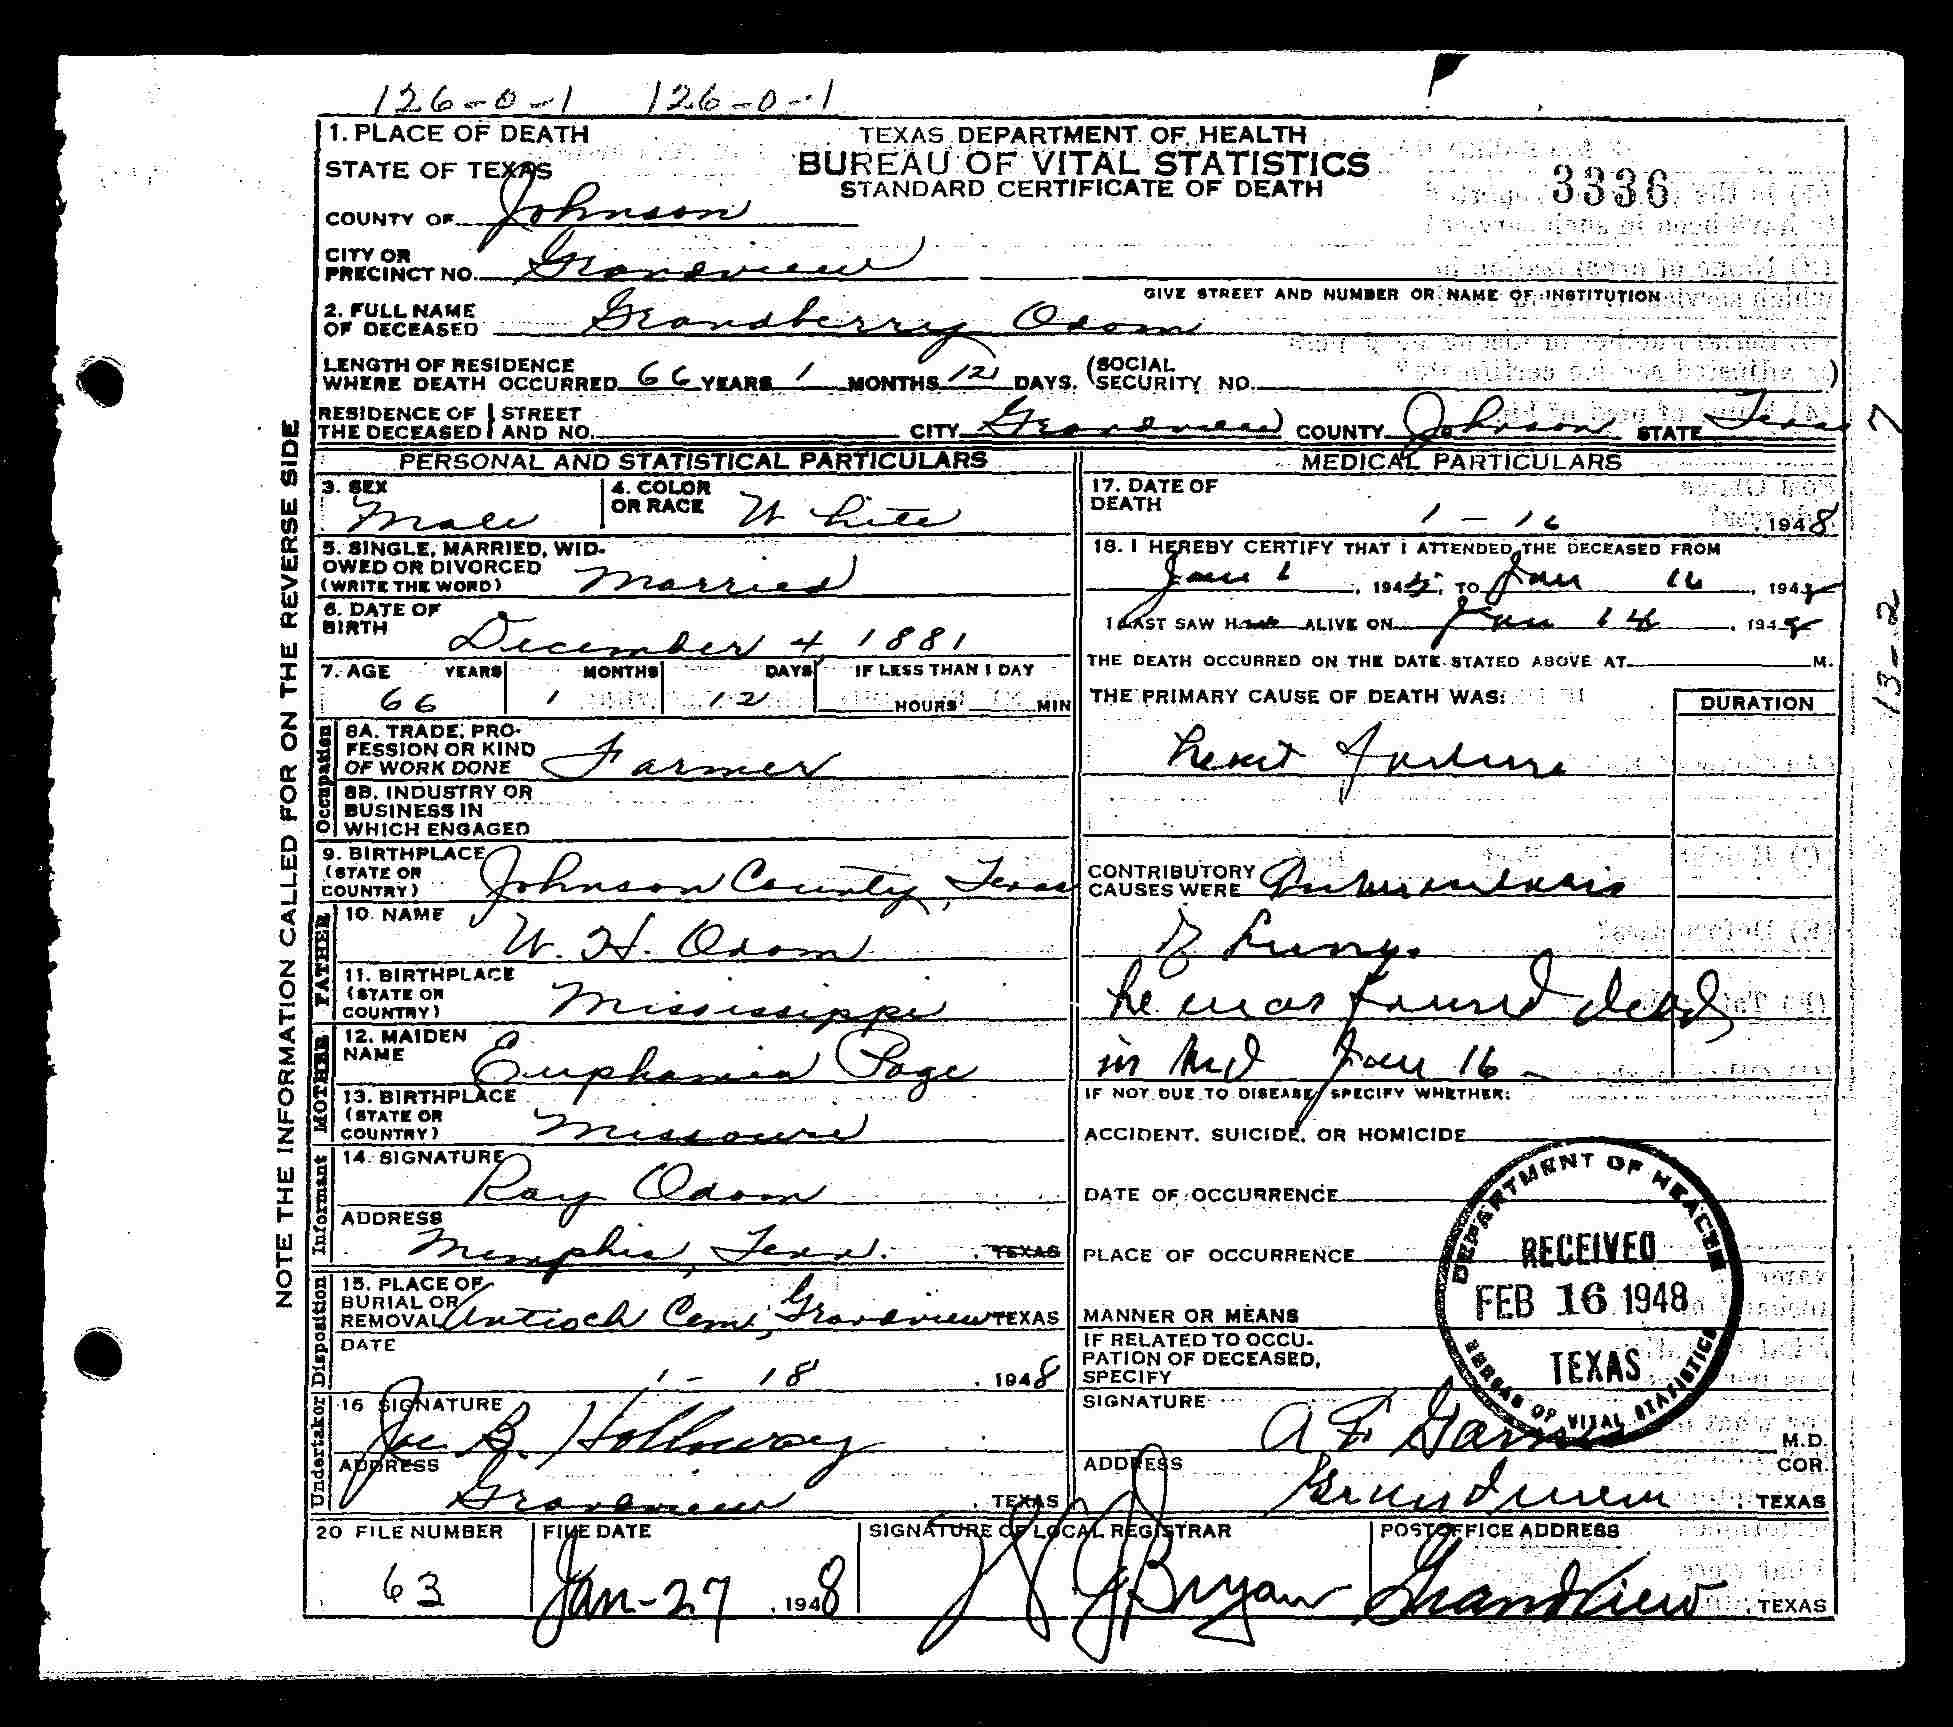 126-0-1 126-0-1
1. PLACE OF DEATH
STATE OF TEXAS
TEXAS DEPARTMENT OF HEALTH
BUREAU OF VITAL STATISTICS
STANDARD CERTIFICATE OF DEATH
3336
COUNTY OF Johnson
CITY OR
PRECINCT NO. Grandview
GIVE STREET AND NUMBER OR NAME OF INSTITUTION
2. FULL NAME
OF DECEASED Grandberry Odom
LENGTH OF RESIDENCE
WHERE DEATH OCCURRED 66 YEARS 1 MONTHS 12 DAYS. (SOCIAL
SECURITY NO. )
RESIDENCE OF THE DECEASED STREET AND NO. CITY Grandview COUNTY Johnson STATE Texas
7
NOTE THE INFORMATION CALLED FOR ON THE REVERSE SIDE
PERSONAL AND STATISTICAL PARTICULARS
3. SEX Male
4. COLOR
OR RACE White
5. SINGLE, MARRIED, WID-
OWED OR DIVORCED
(WRITE THE WORD) Married
6. DATE OF
BIRTH December 4, 1881
7. AGE YEARS MONTHS DAYS IF LESS THAN 1 DAY
66 1 12 HOURS MIN
Occupation
8A. TRADE, PRO-
FESSION OR KIND
OF WORK DONE Farmer
8B. INDUSTRY OR
BUSINESS IN
WHICH ENGAGED
9. BIRTHPLACE
(STATE OR
COUNTRY) Johnson County, Texas
FATHER
10. NAME W. H. Odom
11. BIRTHPLACE
(STATE OR
COUNTRY) Mississippi
MOTHER
12. MAIDEN
NAME Euphamia Page
13. BIRTHPLACE
(STATE OR
COUNTRY) Missouri
Informant
14. SIGNATURE Ray Odom
ADDRESS Memphis, Tenn. TEXAS
Disposition
15. PLACE OF
BURIAL OR
REMOVAL Antioch Cem, Grandview TEXAS
DATE 1-18, 1948
Undertaker
16 SIGNATURE Joe B. Holloway
ADDRESS Grandview, TEXAS
MEDICAL PARTICULARS
17. DATE OF
DEATH 1-16, 1948
18. I HEREBY CERTIFY THAT I ATTENDED THE DECEASED FROM
Jan 1, 194 TO Jan 16, 1948
I LAST SAW H ALIVE ON Jan 14, 1948
THE DEATH OCCURRED ON THE DATE STATED ABOVE AT M.
13-2
THE PRIMARY CAUSE OF DEATH WAS: DURATION
heart failure
CONTRIBUTORY
CAUSES WERE
of Lung.
he was found dead
in bed Jan 16 -
IF NOT DUE TO DISEASE, SPECIFY WHETHER:
ACCIDENT, SUICIDE, OR HOMICIDE
DATE OF OCCURRENCE
PLACE OF OCCURRENCE
MANNER OR MEANS
IF RELATED TO OCCU-
PATION OF DECEASED,
SPECIFY
DEPARTMENT OF HEALTH
RECEIVED
FEB 16 1948
TEXAS
BUREAU OF VITAL STATISTICS
SIGNATURE A F M.D.
ADDRESS Grandview, TEXAS COR.
20 FILE NUMBER 63
FILE DATE Jan-27, 1948
SIGNATURE OF LOCAL REGISTRAR Bryan
POSTOFFICE ADDRESS Grandview, TEXAS